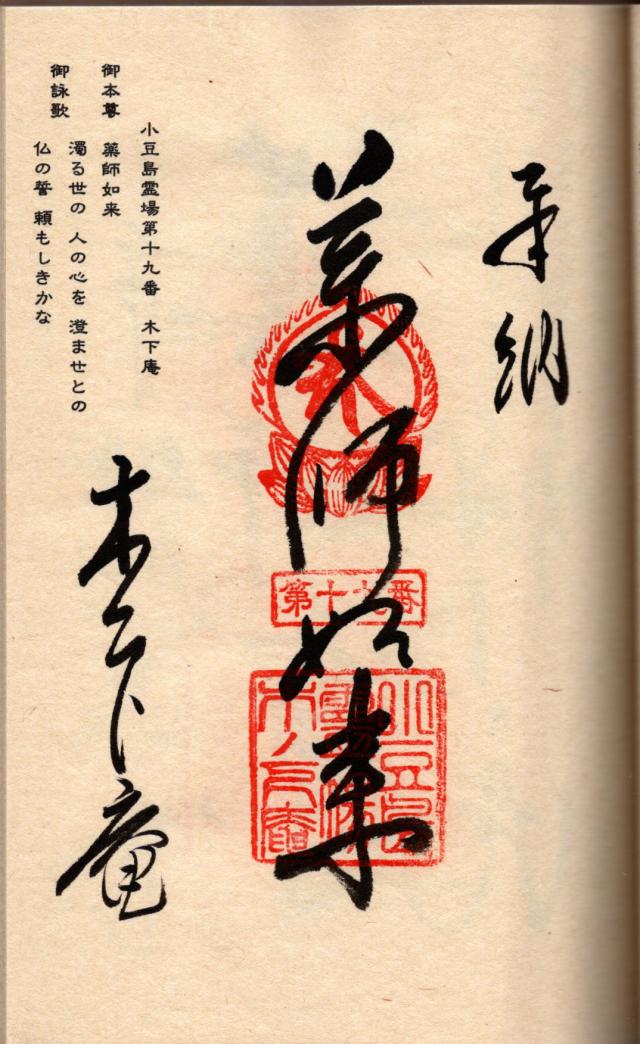 奉納
薬師如来
第十九番
小豆島
霊場
木ノ下庵
木ノ下庵
小豆島霊場第十九番 木下庵
御本尊 薬師如来
御詠歌 濁る世の 人の心を 澄ませとの
仏の誓 頼もしきかな